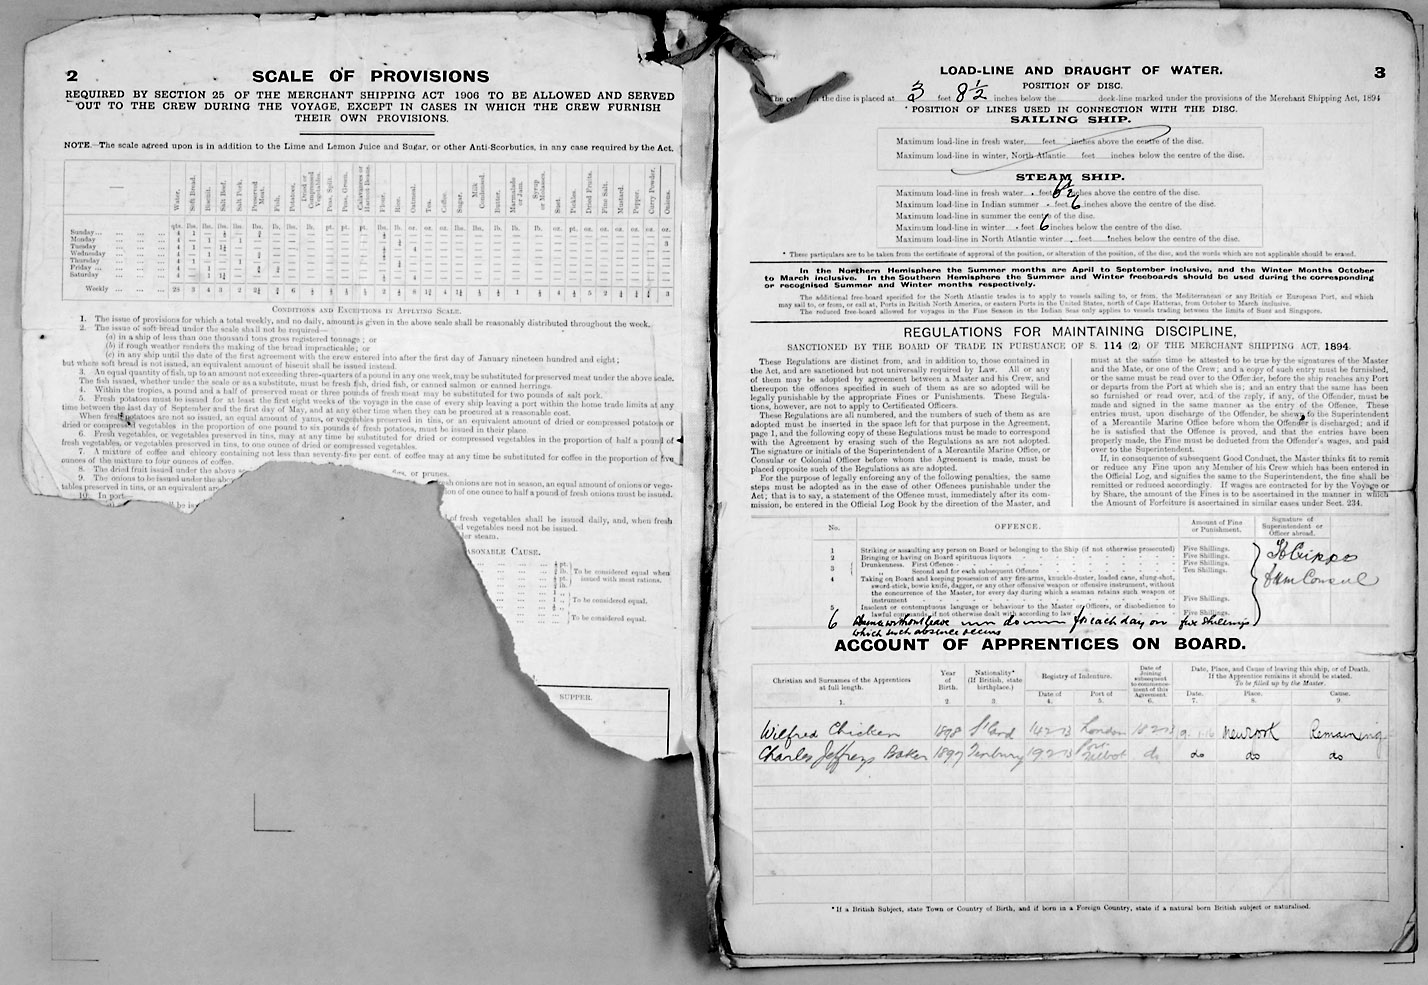 2
SCALE OF PROVISIONS
REQUIRED BY SECTION 25 OF THE MERCHANT SHIPPING ACT 1906 TO BE ALLOWED AND SERVED
OUT TO THE CREW DURING THE VOYAGE, EXCEPT IN CASES IN WHICH THE CREW FURNISH
THEIR OWN PROVISIONS.
NOTE.—The scale agreed upon is in addition to the Lime and Lemon Juice and Sugar, or other Anti-Scorbutics, in any case required by the Act.
Water. Soft Bread. Biscuit. Salt Beef. Salt Pork. Preserved Meat. Fish. Potatoes. Dried or Compressed Vegetables. Peas, Split. Peas, Green. Calavances or Haricot Beans. Flour. Rice. Oatmeal. Tea. Coffee. Sugar. Milk Condensed. Butter. Marmalade or Jam. Syrup or Molasses. Suet. Pickles. Dried Fruits. Fine Salt. Mustard. Pepper. Curry Powder. Onions.
Sunday
Monday
Tuesday
Wednesday
Thursday
Friday
Saturday
Weekly
CONDITIONS AND EXCEPTIONS IN APPLYING SCALE.
1. The issue of provisions for which a total weekly, and no daily, amount is given in the above scale shall be reasonably distributed throughout the week.
2. The issue of soft bread under the scale shall not be required—
(a) in a ship of less than one thousand tons gross registered tonnage; or
(b) if rough weather renders the making of the bread impracticable; or
(c) in any ship until the date of the first agreement with the crew entered into after the first day of January nineteen hundred and eight;
but where soft bread is not issued, an equivalent amount of biscuit shall be issued instead.
3. An equal quantity of fish, up to an amount not exceeding three-quarters of a pound in any one week, may be substituted for preserved meat under the above scale.
The fish issued, whether under the scale or as a substitute, must be fresh fish, dried fish, or canned salmon or canned herrings.
4. Within the tropics, a pound and a half of preserved meat or three pounds of fresh meat may be substituted for two pounds of salt pork.
5. Fresh potatoes must be issued for at least the first eight weeks of the voyage in the case of every ship leaving a port within the home trade limits at any
time between the last day of September and the first day of May, and at any other time when they can be procured at a reasonable cost.
When fresh potatoes are not so issued, an equal amount of yams, or vegetables preserved in tins, or an equivalent amount of dried or compressed potatoes or
dried or compressed vegetables in the proportion of one pound to six pounds of fresh potatoes, must be issued in their place.
6. Fresh vegetables, or vegetables preserved in tins, may at any time be substituted for dried or compressed vegetables in the proportion of half a pound of
fresh vegetables, or vegetables preserved in tins, to one ounce of dried or compressed vegetables.
7. A mixture of coffee and chicory containing not less than seventy-five per cent. of coffee may at any time be substituted for coffee in the proportion of five
ounces of the mixture to four ounces of coffee.
8. The dried fruit issued under the above
or prunes.
9. The onions to be issued under the above
fresh onions are not in season, an equal amount of onions or vege-
tables preserved in tins, or an equivalent
of one ounce to half a pound of fresh onions must be issued.
10. In port—
of fresh vegetables shall be issued daily, and, when fresh
vegetables need not be issued.
steam.
CAUSE.
To be considered equal when
issued with meat rations.
To be considered equal.
To be considered equal.
SUPPER.
3
LOAD-LINE AND DRAUGHT OF WATER.
POSITION OF DISC.
the disc is placed at 3 feet 8½ inches below the deck-line marked under the provisions of the Merchant Shipping Act, 1894
* POSITION OF LINES USED IN CONNECTION WITH THE DISC.
SAILING SHIP.
Maximum load-line in fresh water, feet inches above the centre of the disc.
Maximum load-line in winter, North Atlantic feet inches below the centre of the disc.
STEAM SHIP.
Maximum load-line in fresh water - feet 6½ inches above the centre of the disc.
Maximum load-line in Indian summer - feet 6 inches above the centre of the disc.
Maximum load-line in summer the centre of the disc.
Maximum load-line in winter - feet 6 inches below the centre of the disc.
Maximum load-line in North Atlantic winter - feet inches below the centre of the disc.
* These particulars are to be taken from the certificate of approval of the position, or alteration of the position, of the disc, and the words which are not applicable should be erased.
In the Northern Hemisphere the Summer months are April to September inclusive, and the Winter Months October
to March inclusive. In the Southern Hemisphere the Summer and Winter freeboards should be used during the corresponding
or recognised Summer and Winter months respectively.
The additional free-board specified for the North Atlantic trades is to apply to vessels sailing to, or from, the Mediterranean or any British or European Port, and which
may sail to, or from, or call at, Ports in British North America, or eastern Ports in the United States, north of Cape Hatteras, from October to March inclusive.
The reduced free-board allowed for voyages in the Fine Season in the Indian Seas only applies to vessels trading between the limits of Suez and Singapore.
REGULATIONS FOR MAINTAINING DISCIPLINE,
SANCTIONED BY THE BOARD OF TRADE IN PURSUANCE OF S. 114 (2) OF THE MERCHANT SHIPPING ACT, 1894.
These Regulations are distinct from, and in addition to, those contained in
the Act, and are sanctioned but not universally required by Law. All or any
of them may be adopted by agreement between a Master and his Crew, and
thereupon the offences specified in such of them as are so adopted will be
legally punishable by the appropriate Fines or Punishments. These Regula-
tions, however, are not to apply to Certificated Officers.
These Regulations are all numbered, and the numbers of such of them as are
adopted must be inserted in the space left for that purpose in the Agreement,
page 1, and the following copy of these Regulations must be made to correspond
with the Agreement by erasing such of the Regulations as are not adopted.
The signature or initials of the Superintendent of a Mercantile Marine Office, or
Consular or Colonial Officer before whom the Agreement is made, must be
placed opposite such of the Regulations as are adopted.
For the purpose of legally enforcing any of the following penalties, the same
steps must be adopted as in the case of other Offences punishable under the
Act; that is to say, a statement of the Offence must, immediately after its com-
mission, be entered in the Official Log Book by the direction of the Master, and
must at the same time be attested to be true by the signatures of the Master
and the Mate, or one of the Crew; and a copy of such entry must be furnished,
or the same must be read over to the Offender, before the ship reaches any Port
or departs from the Port at which she is; and an entry that the same has been
so furnished or read over, and of the reply, if any, of the Offender, must be
made and signed in the same manner as the entry of the Offence. These
entries must, upon discharge of the Offender, be shewn to the Superintendent
of a Mercantile Marine Office before whom the Offender is discharged; and if
he is satisfied that the Offence is proved, and that the entries have been
properly made, the Fine must be deducted from the Offender's wages, and paid
over to the Superintendent.
If, in consequence of subsequent Good Conduct, the Master thinks fit to remit
or reduce any Fine upon any Member of his Crew which has been entered in
the Official Log, and signifies the same to the Superintendent, the fine shall be
remitted or reduced accordingly. If wages are contracted for by the Voyage or
by Share, the amount of the Fines is to be ascertained in the manner in which
the Amount of Forfeiture is ascertained in similar cases under Sect. 234.
No. OFFENCE. Amount of Fine or Punishment. Signature of Superintendent or Officer abroad.
1 Striking or assaulting any person on Board or belonging to the Ship (if not otherwise prosecuted) Five Shillings.
2 Bringing or having on Board spirituous liquors Five Shillings.
3 Drunkenness. First Offence Five Shillings.
" Second and for each subsequent Offence Ten Shillings.
4 Taking on Board and keeping possession of any fire-arms, knuckle-duster, loaded cane, slung-shot,
sword-stick, bowie knife, dagger, or any other offensive weapon or offensive instrument, without
the concurrence of the Master, for every day during which a seaman retains such weapon or
instrument Five Shillings.
5 Insolent or contemptuous language or behaviour to the Master or Officers, or disobedience to
lawful commands, if not otherwise dealt with according to law Five Shillings.
6 Absence without leave for each day on five shillings
which such absence occurs
Cripps
Consul
ACCOUNT OF APPRENTICES ON BOARD.
Christian and Surnames of the Apprentices at full length. Year of Birth. Nationality* (If British, state birthplace.) Registry of Indenture. Date of Joining subsequent to commencement of this Agreement. Date, Place, and Cause of leaving this ship, or of Death. If the Apprentice remains it should be stated. To be filled up by the Master.
Date of Port of Date. Place. Cause.
1. 2. 3. 4. 5. 6. 7. 8. 9.
Wilfred Chicken 1898 S'land 14 2 13 London 18 2 13 9.1.16 Newport Remaining
Charles Jeffreys Baker 1897 Tenbury 19 2 13 Port Talbot do do do do
* If a British Subject, state Town or Country of Birth, and if born in a Foreign Country, state if a natural born British subject or naturalised.